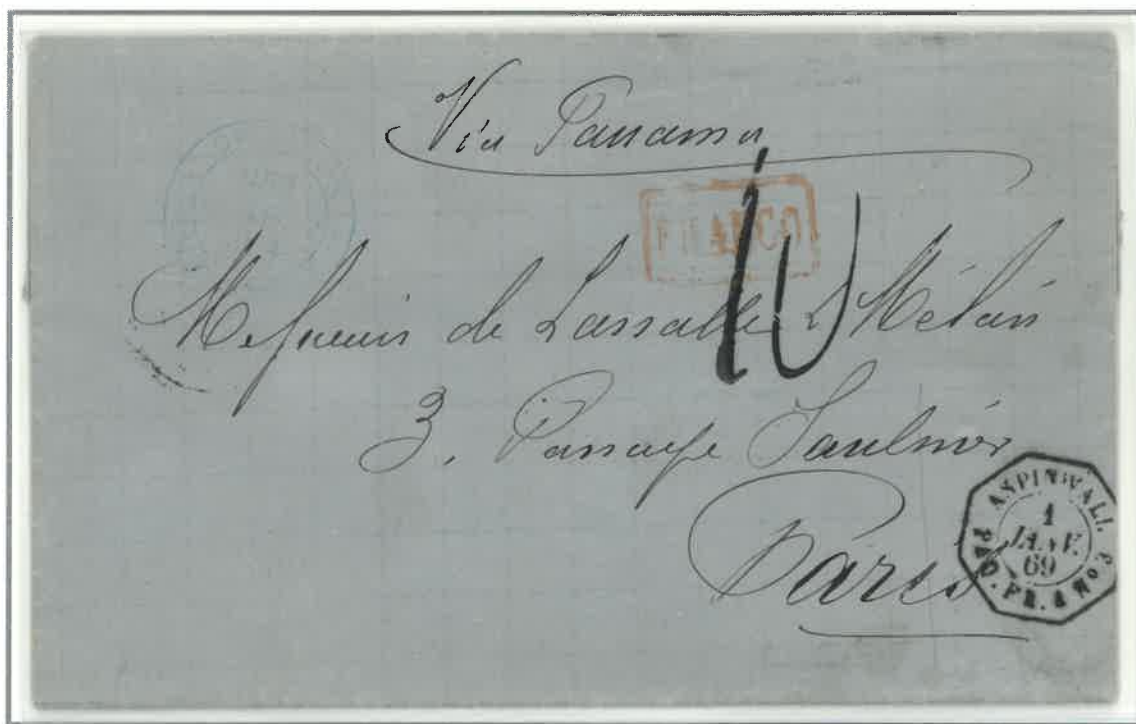 Via Panama
FRANCO
10
Messieurs de Lassalle & Mélan
3, Passage Saulnier
Paris
ASPINWALL.
1
JANV.
69
PAQ. FR. A No.